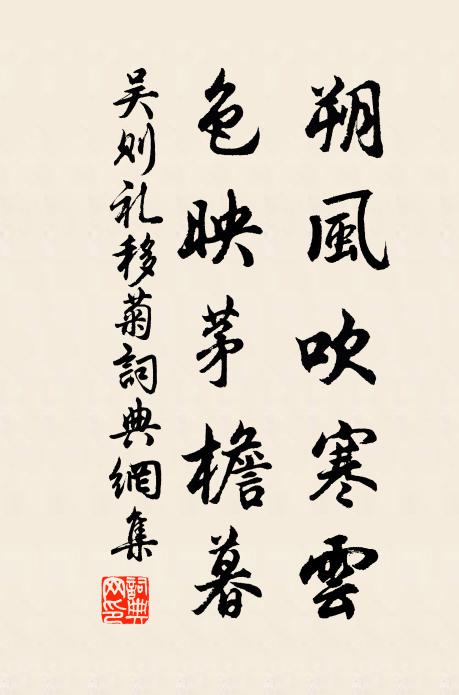 朔風吹寒雲
色映茅檐暮
吴则礼移菊詞典網集
詞典網印